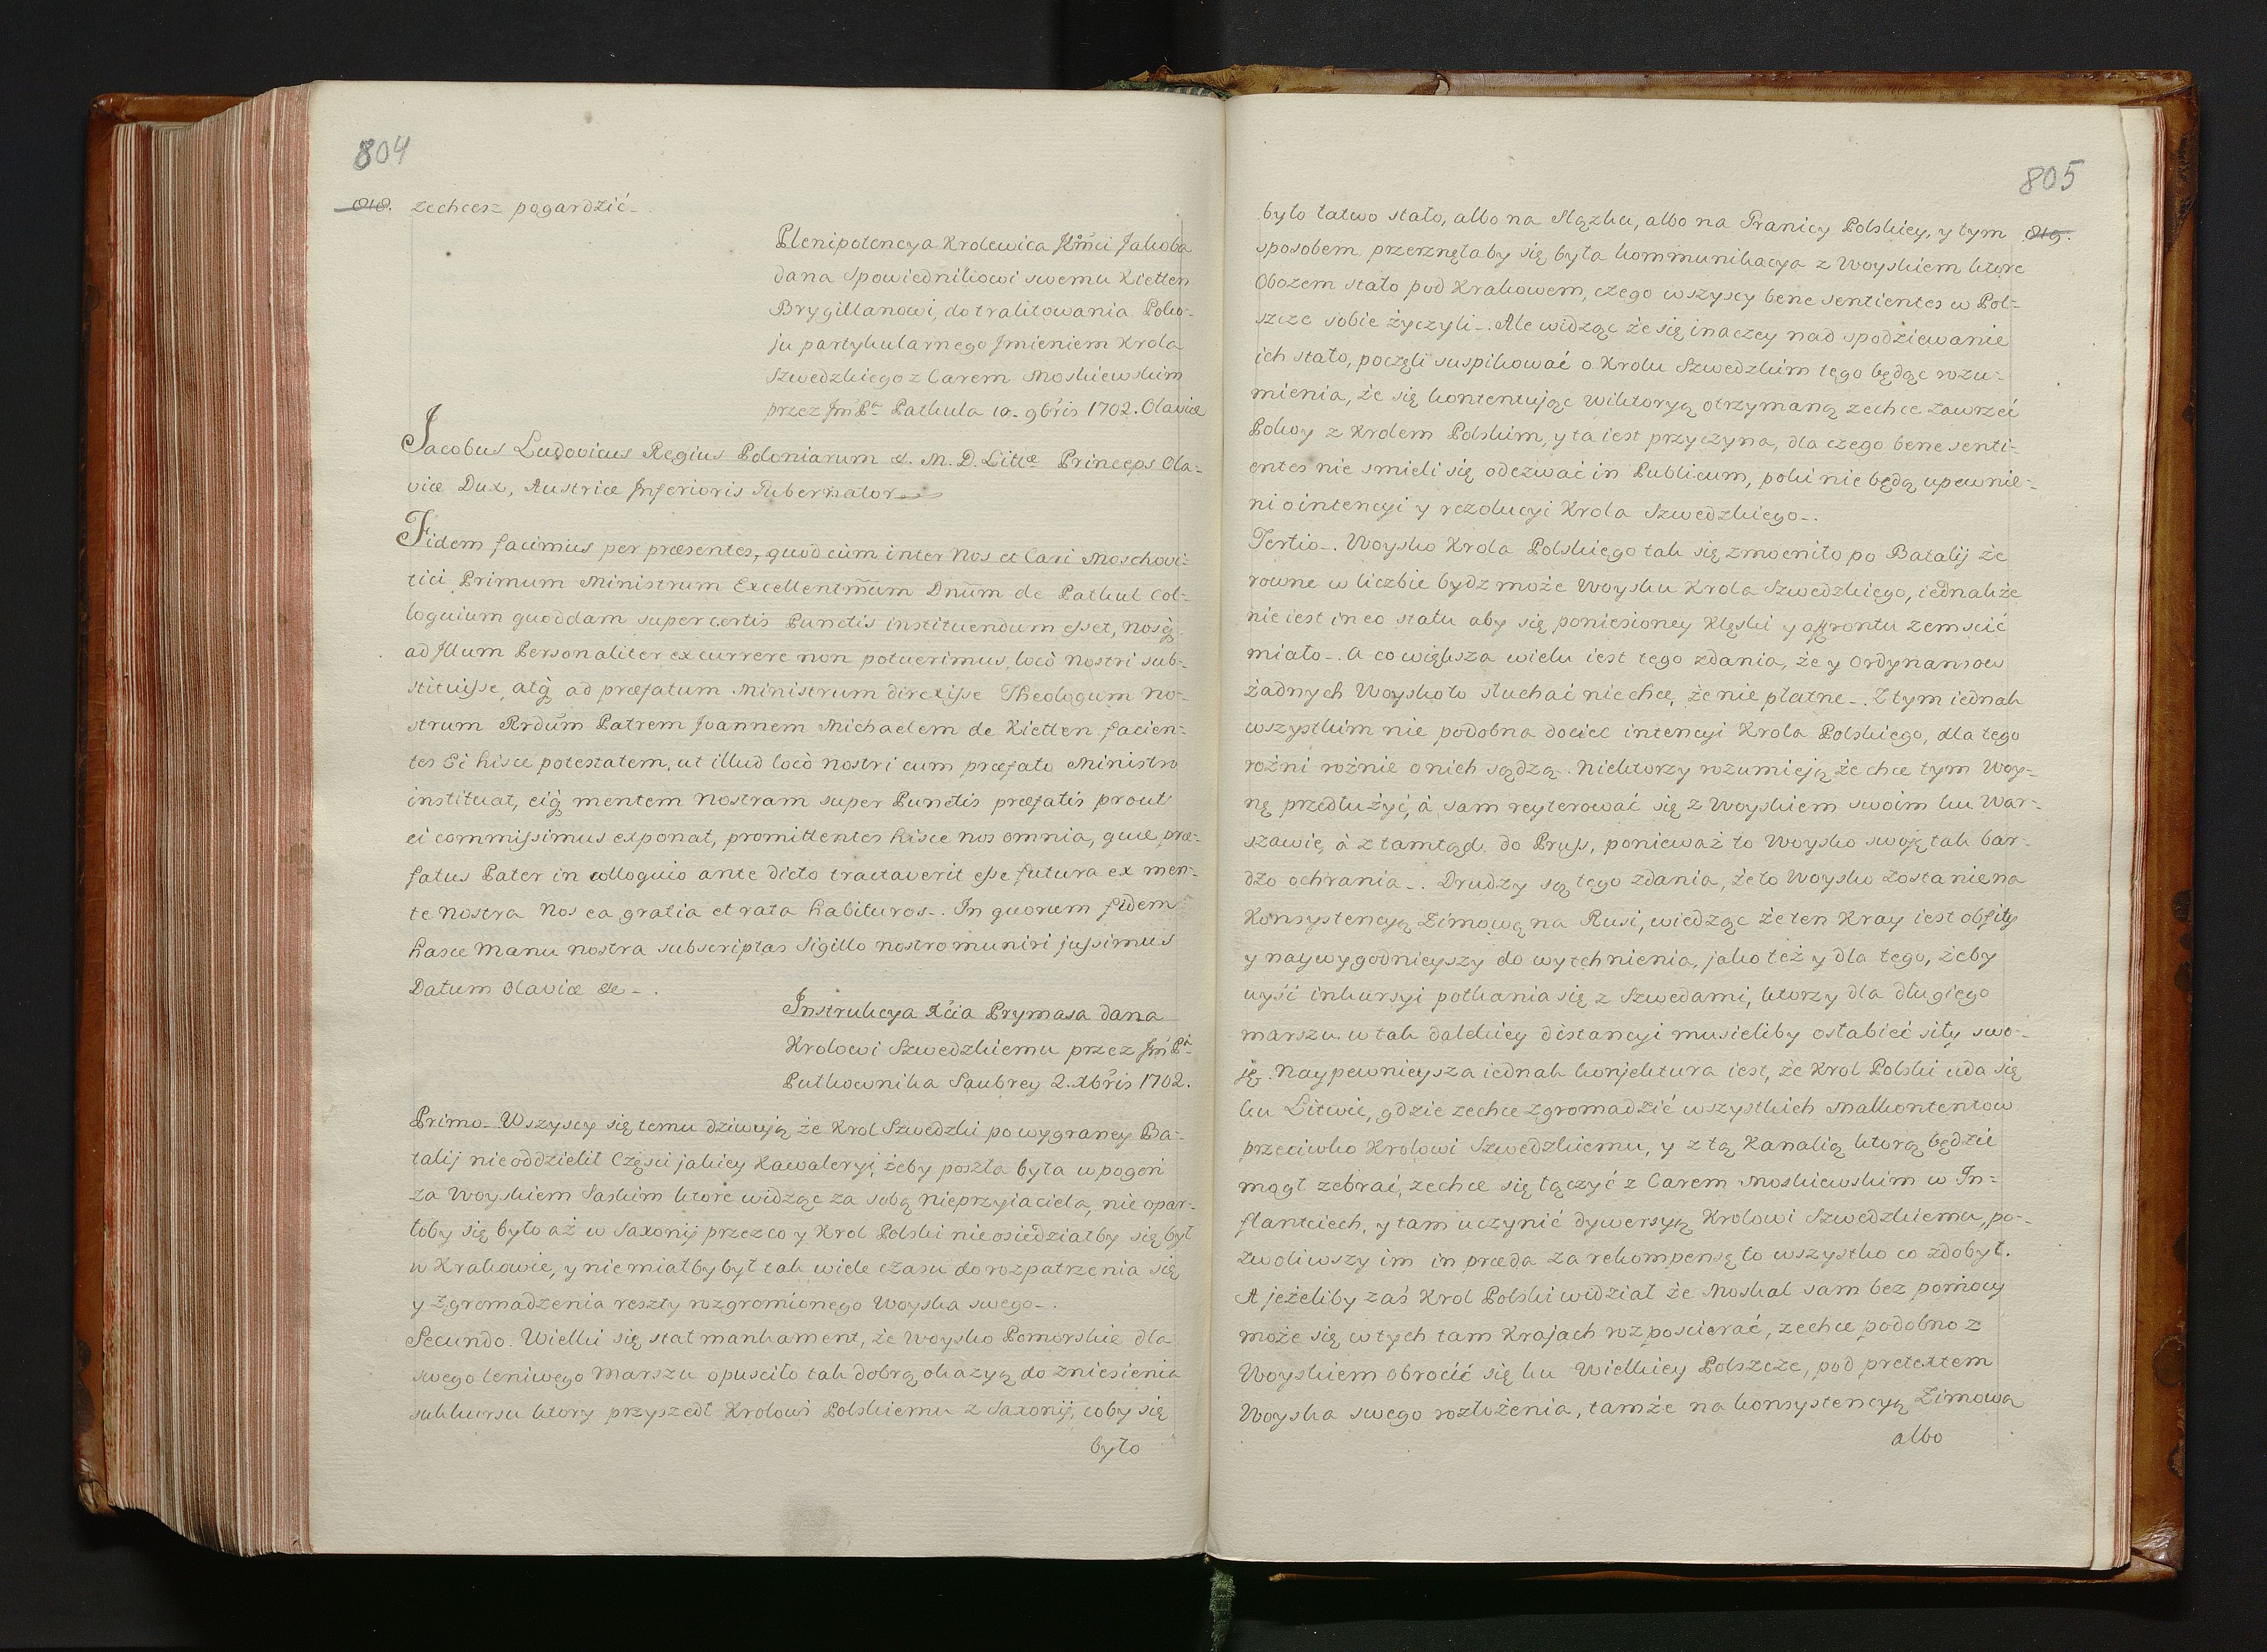 804
818. zechcesz pogardzić.
Plenipotencya Krolewica Jmci Jakoba
dana Spowiednikowi swemu Kietten
Brygillanowi, do traktowania Poko-
ju partykularnego Jmieniem Krola
Szwedzkiego z Carem Moskiewskim
przez Jm Pa Patkula 10. 9bris 1702. Olaviæ
Jacobus Ludovicus Regius Poloniarum &. M. D. Littæ Princeps Ola-
viæ Dux, Austriæ Inferioris Gubernator
Fidem facimus per præsentes, quod cùm inter Nos et Cari Moschovi-
tici Primum Ministrum Excellentmum Dnum de Patkul Col-
loquium quoddam super certis Punctis instituendum esset, nosq
ad Illum Personaliter excurrere non potuerimus, locô nostri sub-
stituisse, atq ad præfatum Ministrum direxisse Theologum no-
strum Rrdum Patrem Joannem Michaelem de Kietten facien-
tes Ei hisce potestatem, ut illud locô nostri cum præfato Ministro
instituat, eiq mentem nostram super Punctis præfatis prout
ei commissimus exponat, promittentes hisce nos omnia, quæ præ-
fatus Pater in colloquio ante dicto tractaverit esse futura ex men-
te nostra Nos ea grata et rata habituros. In quorum fidem
hasce Manu nostra subscriptas Sigillo nostro muniri jussimus
Datum Olaviæ &c.
Instrukcya Xcia Prymasa dana
Krolowi Szwedzkiemu przez Jm Pa
Pułkownika Saubrey 2. Xbris 1702.
Primo. Wszyscy się temu dziwują że Krol Szwedzki po wygraney Ba-
talij nie oddzielił Części jakiey Kawaleryi, żeby poszła była w pogoń
za Woyskiem Saskim ktore widząc za sobą nieprzyiaciela, nie opar-
łoby się było aż w Saxonij przez co y Krol Polski nie osiedziałby się był
w Krakowie, y nie miałby był tak wiele czasu do rozpatrzenia się
y zgromadzenia reszty rozgromionego Woyska swego.
Secundo. Wielki się stał mankament, że Woysko Pomorskie dla
swego leniwego Marszu opusciło tak dobrą okazyą do zniesienia
sukkursu ktory przyszedł Krolowi Polskiemu z Saxonij, coby się
było
805
było łatwo stało, albo na Slązku, albo na Granicy Polskiey, y tym 819.
sposobem przerznęłaby się była kommunikacya z Woyskiem ktore
Obozem stało pod Krakowem, czego wszyscy bene sentientes w Pol-
szcze sobie życzyli. Ale widząc że się inaczey nad spodziewanie
ich stało, poczęli suspikować o Krolu Szwedzkim tego będąc rozu-
mienia, że się kontentując wiktoryą otrzymaną zechce zawrzeć
Pokoy z Krolem Polskim, y ta iest przyczyna, dla czego bene senti-
entes nie smieli się odezwać in Publicum, poki nie będą upewnie-
ni o intencyi y rezolucyi Krola Szwedzkiego.
Tertio. Woysko Krola Polskiego tak się zmocniło po Batalij że
rowne w liczbie bydz może Woysku Krola Szwedzkiego, iednakże
nie iest in eo statu aby się poniesioney Klęski y affrontu zemscić
miało. A co większa wielu iest tego zdania, że y Ordynansow
żadnych Woysko to słuchać nie chce, że nie płatne. Z tym iednak
wszystkim nie podobna dociec intencyi Krola Polskiego, dla tego
rożni rożnie o nich sądzą. Niektorzy rozumieją że chce tym Woy-
nę przedłużyć, à sam reyterować się z Woyskiem swoim ku War-
szawie, à z tamtąd do Pruss, ponieważ to Woysko swoje tak bar-
dzo ochrania. Drudzy są tego zdania, że to Woysko zostanie na
Konsystencyą Zimową na Rusi, wiedząc że ten Kray iest obfity
y naywygodnieyszy do wytchnienia, jako też y dla tego, żeby
uyść inkursyi potkania się z Szwedami, ktorzy dla długiego
marszu w tak dalekiey distancyi musieliby osłabieć siły swo-
ję. Naypewnieysza iednak konjektura iest, że Krol Polski uda się
ku Litwie, gdzie zechce zgromadzić wszystkich Malkontentow
przeciwko Krolowi Szwedzkiemu, y z tą Kanalią ktorą będzie
mogł zebrać, zechce się łączyć z Carem Moskiewskim w In-
flanciech, y tam uczynić dywersyą Krolowi Szwedzkiemu, po-
zwoliwszy im in præda za rekompensę to wszystko co zdobył.
A jeżeliby zaś Krol Polski widział że Moskal sam bez pomocy
może się w tych tam Krajach rozposcierać, zechce podobno z
Woyskiem obrocić się ku Wielkiey Polszcze, pod pretextem
Woyska swego rozłożenia, tamże na konsystencyą Zimową
albo